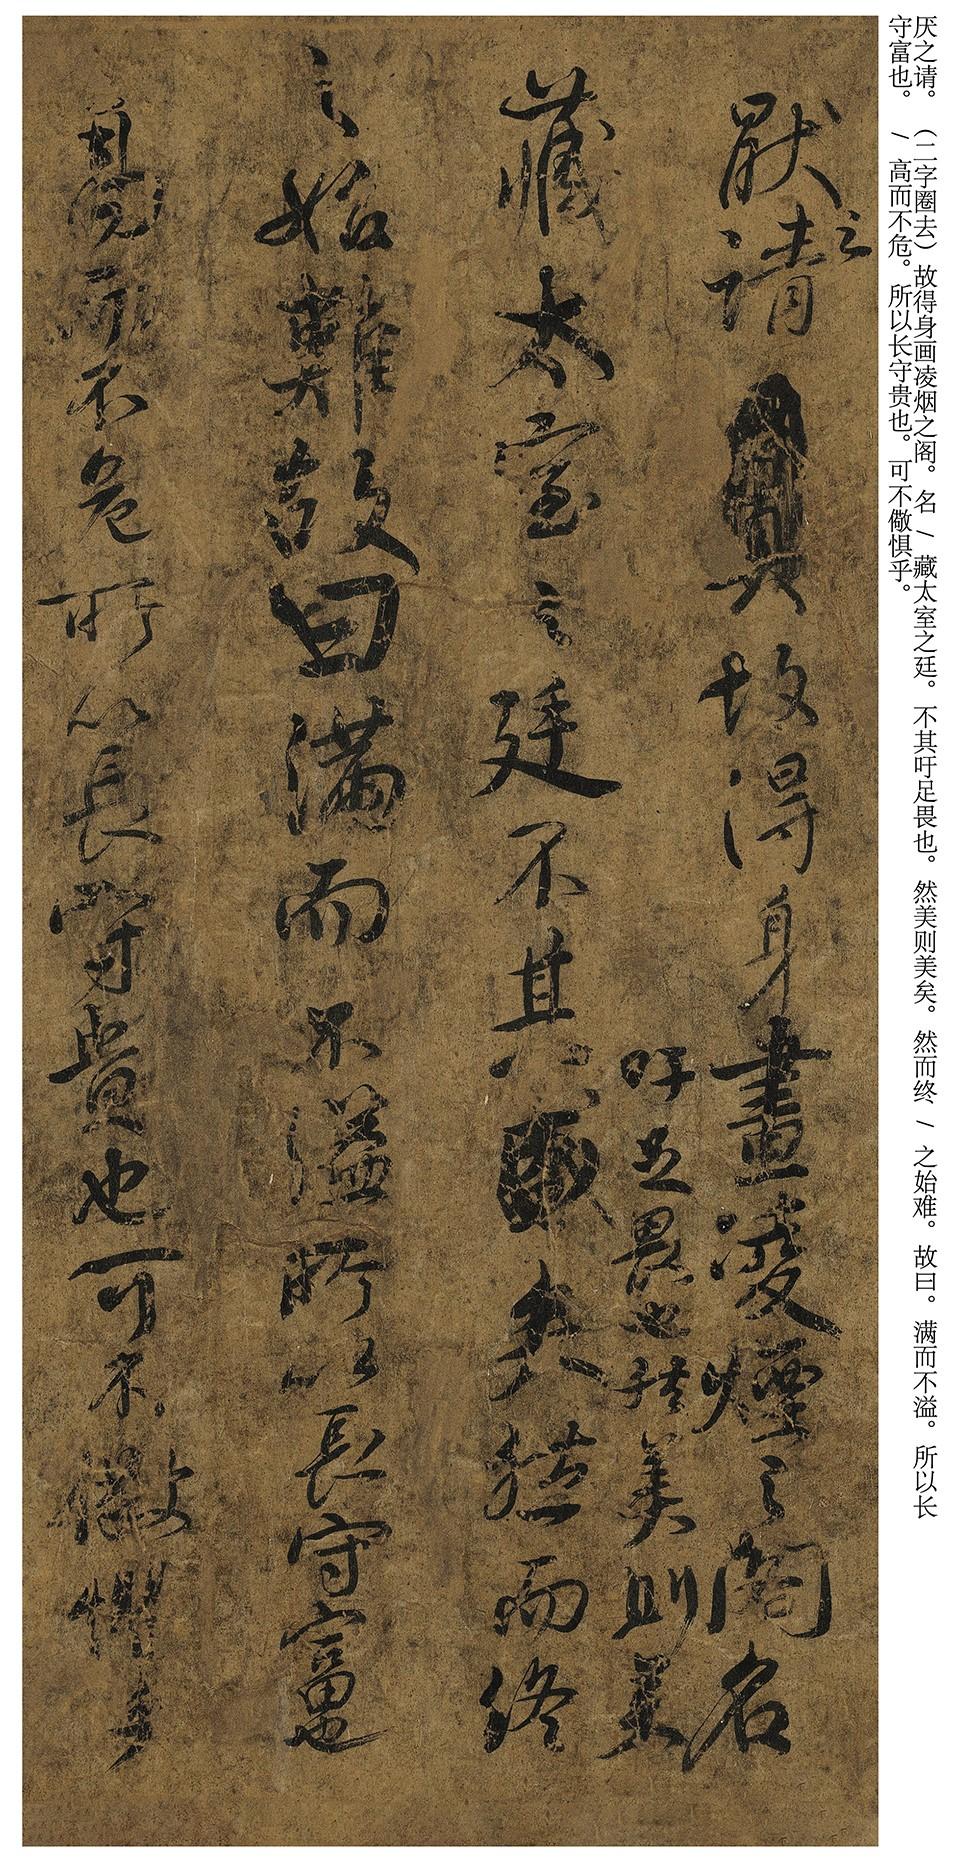 厌之请。（二字圈去）故得身画凌烟之阁。名/藏太室之廷。不其吁足畏也。然美则美矣。然而终/之始难。故曰。满而不溢。所以长
守富也。/高而不危。所以长守贵也。可不儆惧乎。
厭之請故得身畫凌煙之閣名
吁足畏也然美則美
藏太室之廷不其矣然而終
之始難故曰滿而不溢所以長守富也
高而不危所以長守貴也可不儆懼乎